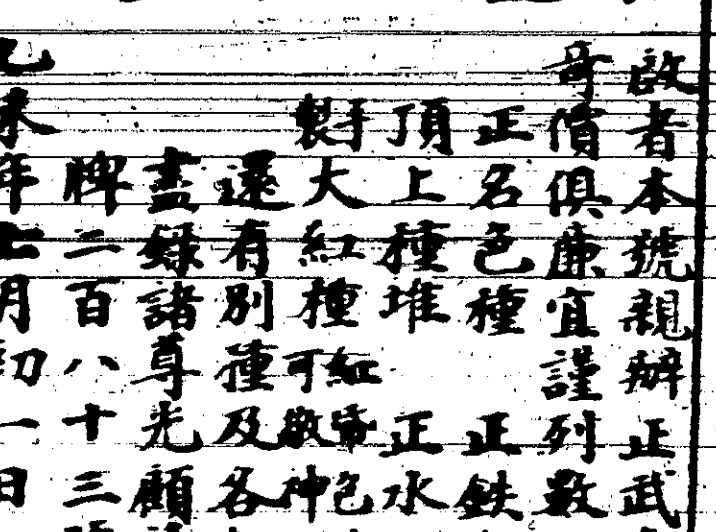 啟者本號親辦正武
奇價俱廉宜謹列數
正名色種 正鉄
頂上種堆 正水
手製大紅種紅
可敬神
還有別種及各
盡錄諸尊光顧
牌二百八十三
年 月初一日